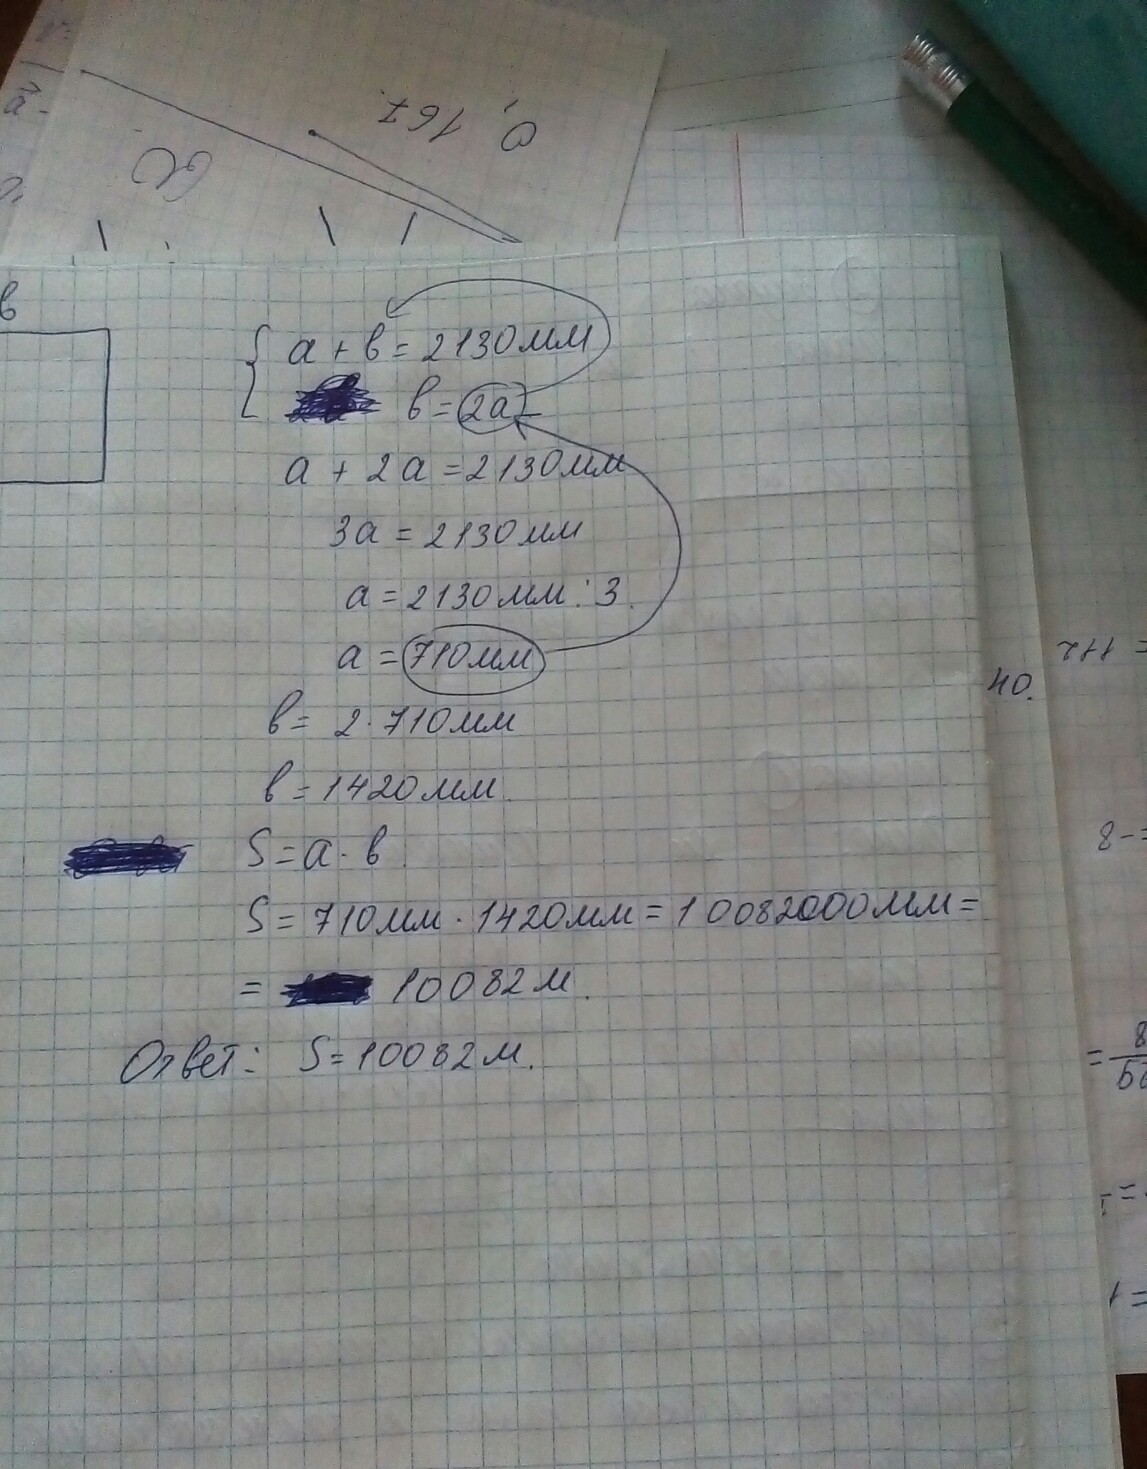 0,167.
в
a + в = 2130мм
в = 2a
a + 2a = 2130мм
3a = 2130мм
a = 2130мм : 3.
a = 710мм
40.
в = 2 · 710мм
в = 1420мм.
S = a · в
S = 710мм · 1420мм = 10082000мм =
= 10082м.
Ответ: S = 10082м.